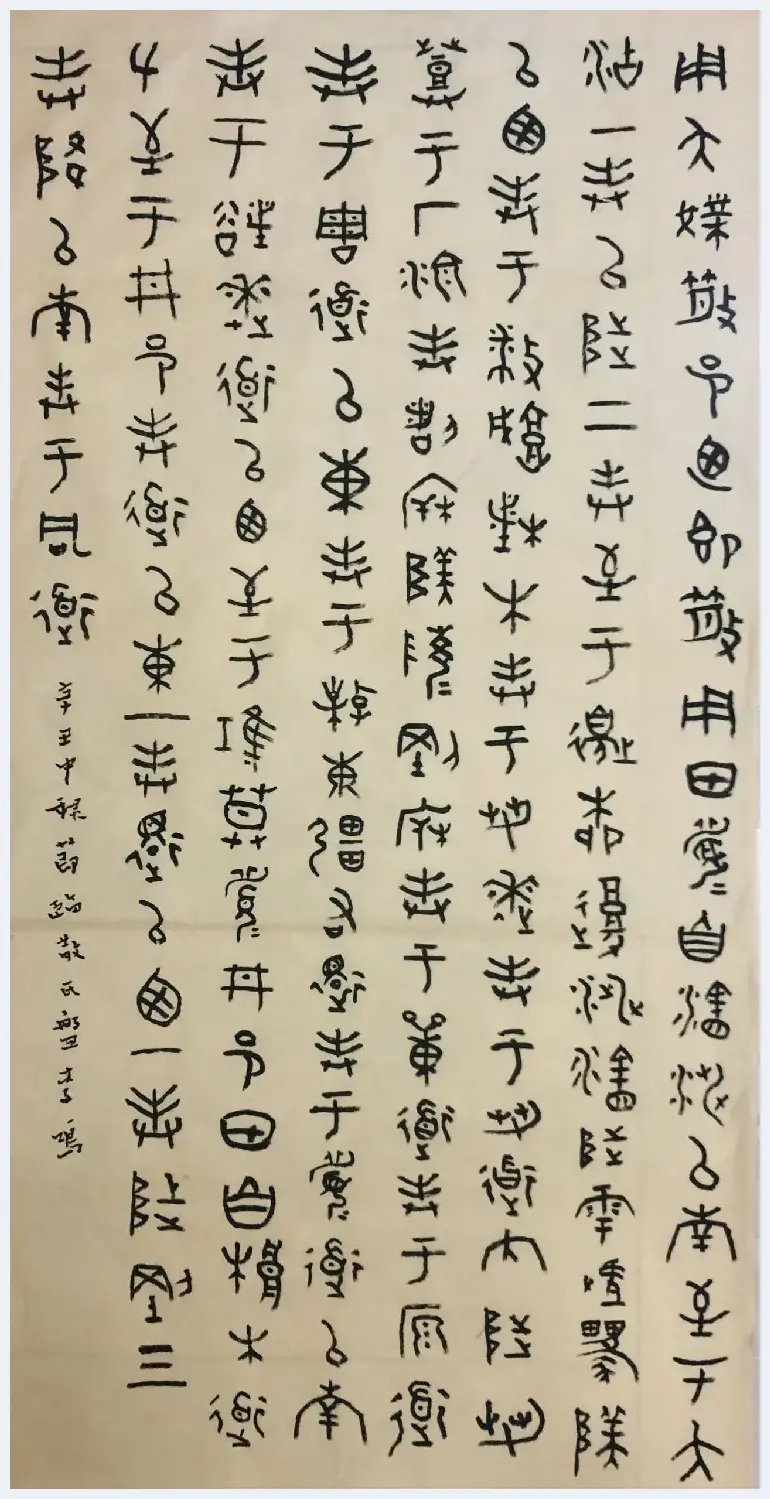 用夨撲散邑迺即散用田眉自瀗涉以南至于大
沽一封以陟二封至于邊柳復涉瀗陟雩䍙𨻰
以西封于敝城楮木封于芻逨封于芻道内陟芻
登于厂湶封剖𣏉𨻰陵剛𣏉封于單道封于原道
封于周道以東封于東疆右還封于眉道以南
封于逨道以西至于莫眉井邑田自根木道
左至于井邑封道以東一封還以西一封陟剛三
封降以南封于同道 辛丑中秋節臨散氏盤李鳴